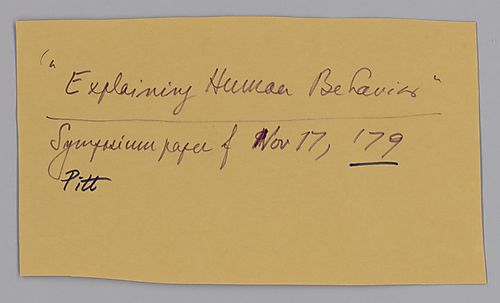 "Explaining Human Behavior"
Symposium paper f Nov 17, '79
Pitt